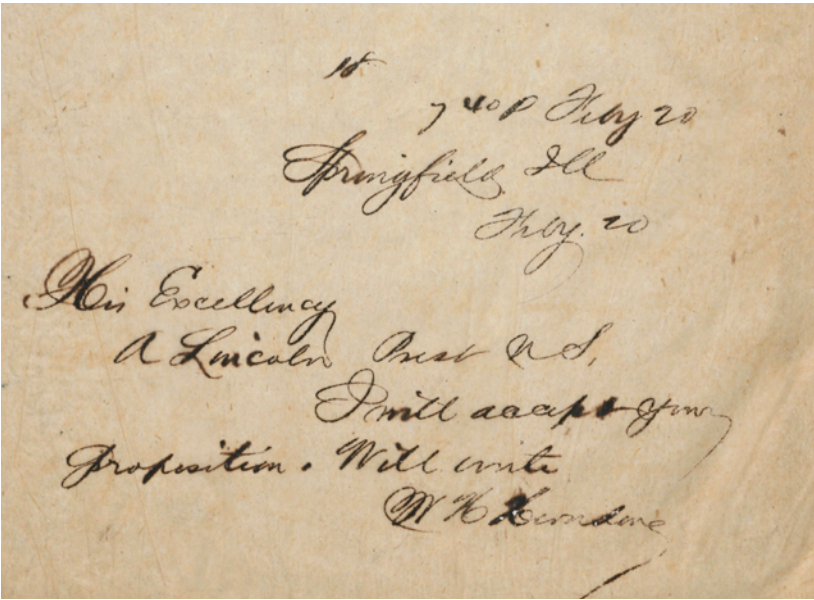 18
7 40 P Feby 20
Springfield Ill
Feby. 20
His Excellency
A Lincoln Prest U S,
I will accept your
proposition. Will write
W H Herndon